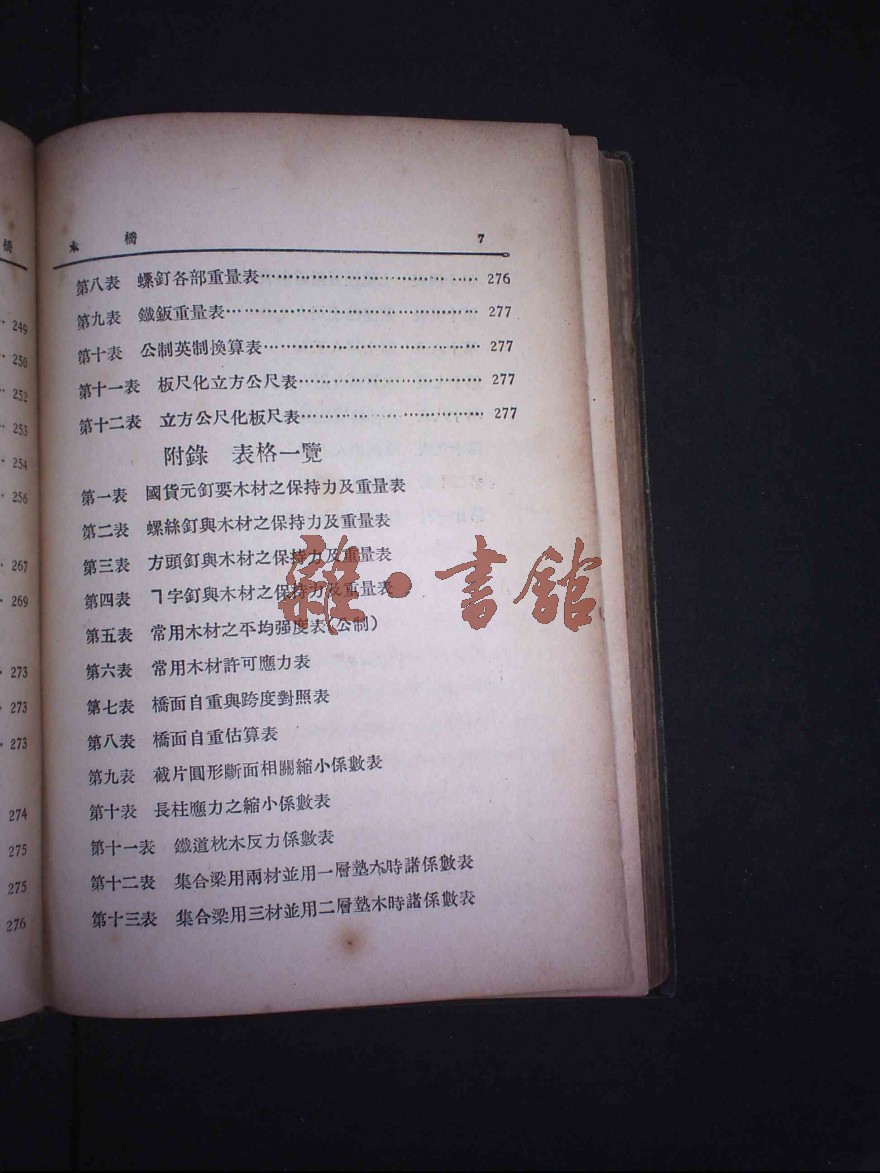 橋
249
250
252
253
254
256
267
269
273
273
273
274
275
275
276
木 橋 7
第八表 螺釘各部重量表 276
第九表 鐵鈑重量表 277
第十表 公制英制換算表 277
第十一表 板尺化立方公尺表 277
第十二表 立方公尺化板尺表 277
附錄 表格一覽
第一表 國貨元釘要木材之保持力及重量表
第二表 螺絲釘與木材之保持力及重量表
第三表 方頭釘與木材之保持力及重量表
第四表 ㄱ字釘與木材之保持力及重量表
第五表 常用木材之平均强度表(公制)
第六表 常用木材許可應力表
第七表 橋面自重與跨度對照表
第八表 橋面自重估算表
第九表 截片圓形斷面相關縮小係數表
第十表 長柱應力之縮小係數表
第十一表 鐵道枕木反力係數表
第十二表 集合梁用兩材並用一層墊木時諸係數表
第十三表 集合梁用三材並用二層墊木時諸係數表
雜·書館